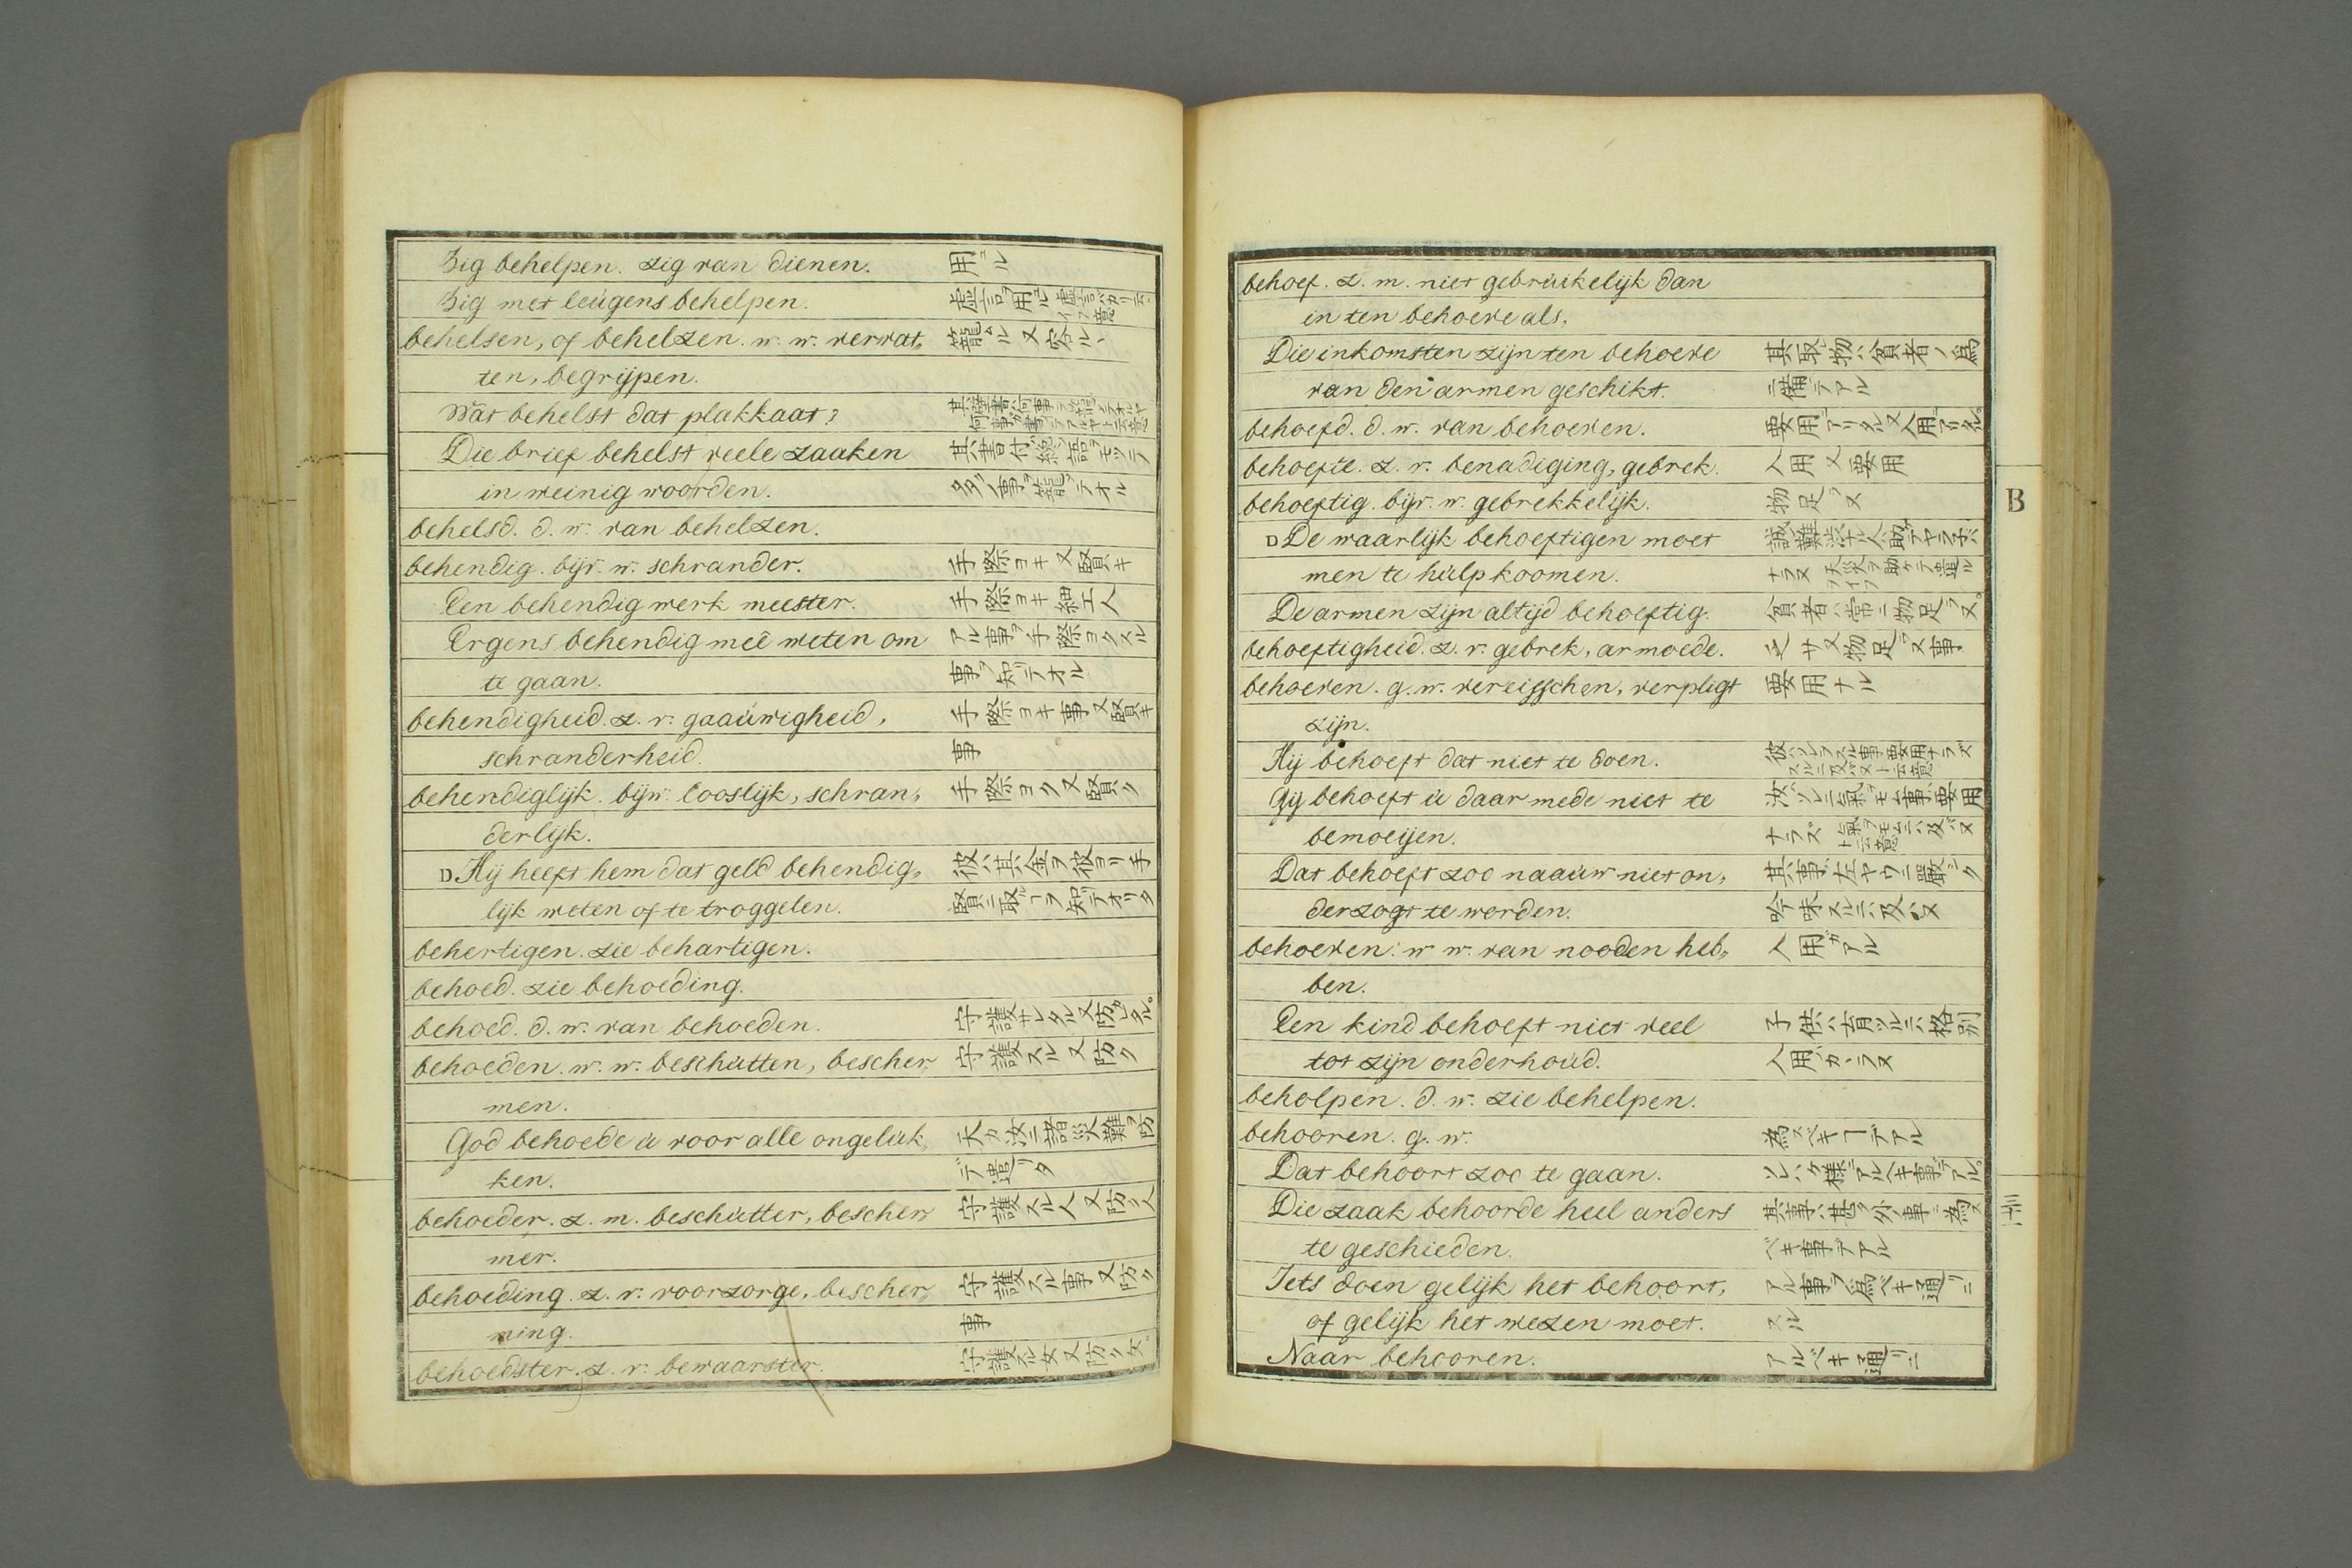 Zig behelpen. zig van dienen. 用ヰル
Zig met leúgens behelpen. 虚言ヲ用ヰル
behelsen, of behelzen. w. w. vervat„ 籠ムル又容ルヽ
ten, begrijpen.
Wat behelst dat plakkaat?
Die brief behelst veele zaaken 其書付ハ
in weinig woorden. 多クノ事ヲ籠メテオル
behelsd. d. w. van behelzen.
behendig. bijv. w. schrander. 手際ヨキ又賢キ
Een behendig werk meester. 手際ヨキ細工人
Ergens behendig meê weten om アル事ヲ手際ヨクスル
te gaan. 事ヲ知テオル
behendigheid. z. v. gaaúwigheid, 手際ヨキ事又賢キ
schranderheid. 事
behendiglijk. bijw. looslijk, schran„ 手際ヨク又賢ク
derlijk.
D Hij heeft hem dat geld behendig„ 彼ハ其金ヲ彼ヨリ手
lijk weten af te troggelen. 賢ニ取ヿヲ知テオリタ
behertigen. zie behartigen.
behoed. zie behoeding.
behoed. d. w. van behoeden. 守護サレタル又防ガレタル。
behoeden. w. w. beschùtten, bescher„ 守護スル又防ク
men.
God behoede ù voor alle ongelùk„ 天ガ汝ニ諸災難ヲ防
ken. デ遣リタ
behoeder. z. m. beschùtter, bescher„ 守護スル人又防ク人
mer.
behoeding. z. v. voorzorge, bescher„ 守護スル事又防ク
ming. 事
behoedster. z. v. bewaarster. 守護スル女又防ク女。
behoef. z. m. niet gebrùikelijk dan
in ten behoeve als,
Die inkomsten zijn ten behoeve 其取物ハ貧者ノ為
van den armen geschikt. ニ備テアル
behoefd. d. w. van behoeven. 要用デアリタル又入用デアリタル。
behoefte. z. v. benadiging, gebrek. 入用又要用
behoeftig. bijv. w. gebrekkelijk. 物足ラヌ
D De waarlijk behoeftigen moet
men te hùlp koomen.
De armen zijn altijd behoeftig. 貧者ハ常ニ物足ラヌ。
behoeftigheid. z. v. gebrek, armoede. 乏サ又物足ラヌ事
behoeven. g. w. vereisschen, verpligt 要用ナル
zijn.
Hij behoeft dat niet te doen. 彼ハソレヲスル事要用ナラズ
Gij behoeft ù daar mede niet te 汝ハソレニ氣ヲモム事要用
bemoeijen. ナラズ
Dat behoeft zoo naaùw niet on„ 其事ハ左ヤウニ厳シク
derzogt te worden. 吟味スルニハ及バヌ
behoeven. w. w. van nooden heb„ 入用ガアル
ben.
Een kind behoeft niet veel 子供ハ育ツルニハ格別
tot zijn onderhoùd. 入用ガカヽラヌ
beholpen. d. w. zie behelpen.
behooren. g. w. 為スベキヿデアル
Dat behoort zoo te gaan.
Die zaak behoorde heel anders 其事ハ甚タ外ノ事ニ為ス
te geschieden. ベキ事デアル
Iets doen gelijk het behoort, アル事ヲ為ベキ通リニ
of gelijk het wezen moet. スル
Naar behooren. アルベキ通リニ
B